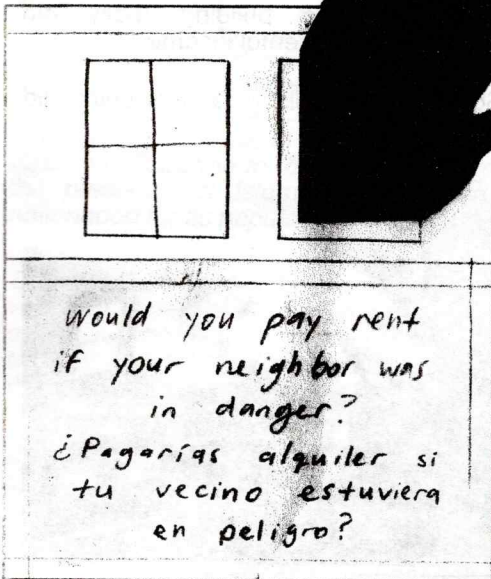 would you pay rent
if your neighbor was
in danger?
¿Pagarías alquiler si
tu vecino estuviera
en peligro?